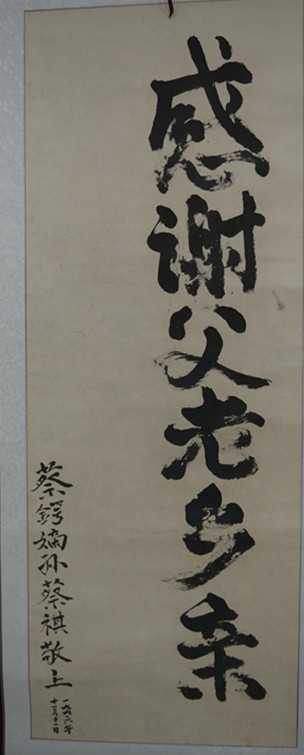 感谢父老乡亲
蔡锷嫡孙蔡祺敬上
一九九六年
十一月十一日